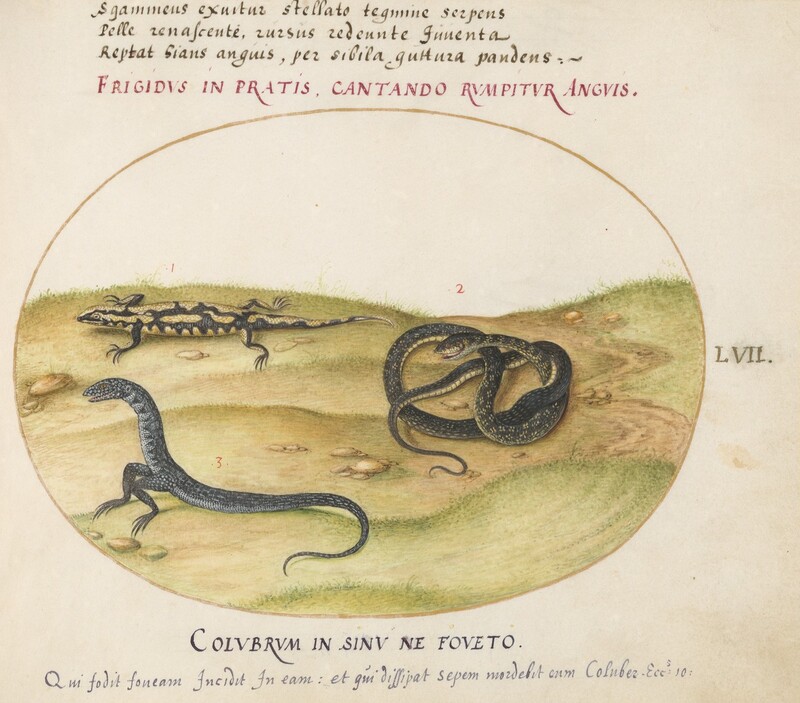 Sqammeus exuitur stellato tegmine serpens
Pelle renascente, rursus redeunte Juuenta
Reptat hians anguis, per sibila guttura pandens :~
FRIGIDVS IN PRATIS, CANTANDO RVMPITVR ANGVIS.
1
2
LVII.
3
COLVBRVM IN SINV NE FOVETO.
Qui fodit foueam Incidit In eam : et qui dissipat sepem mordebit eum Coluber. Ecc. 10: